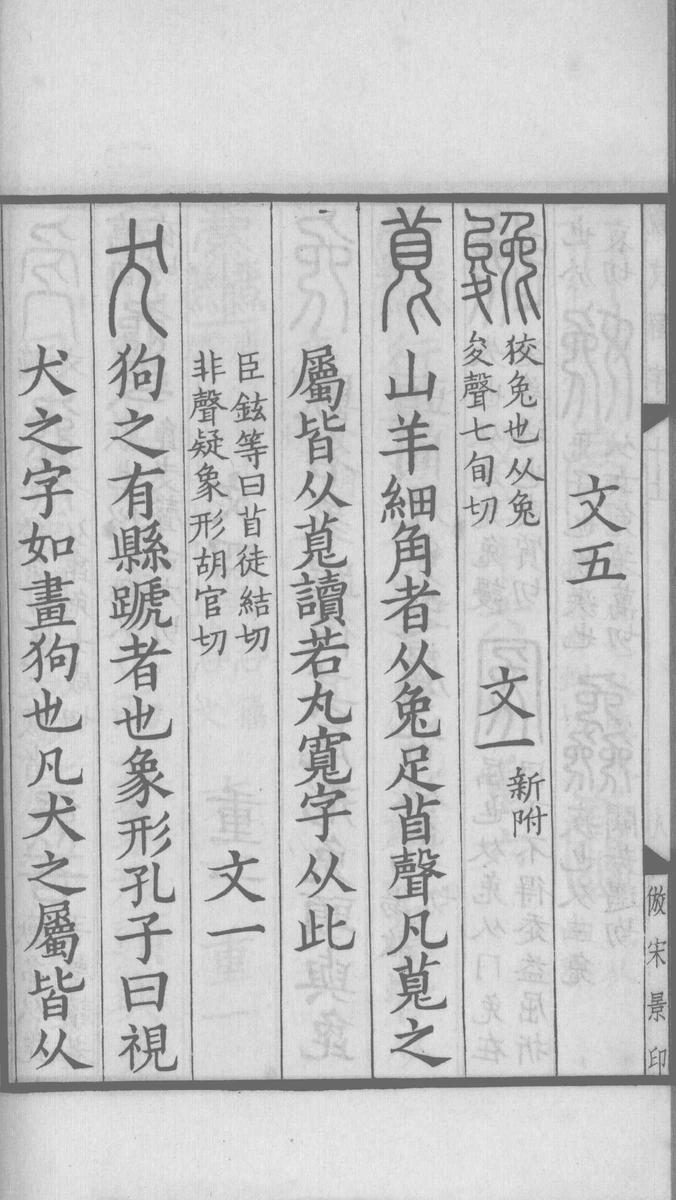 文五
㕙 狡兔也从兔
夋聲七旬切
文一 新附
萈 山羊細角者从兔足苜聲凡萈之
屬皆从萈讀若丸寬字从此
臣鉉等曰苜徒結切
非聲疑象形胡官切
文一
犬 狗之有縣蹏者也象形孔子曰視
犬之字如畫狗也凡犬之屬皆从
倣宋景印